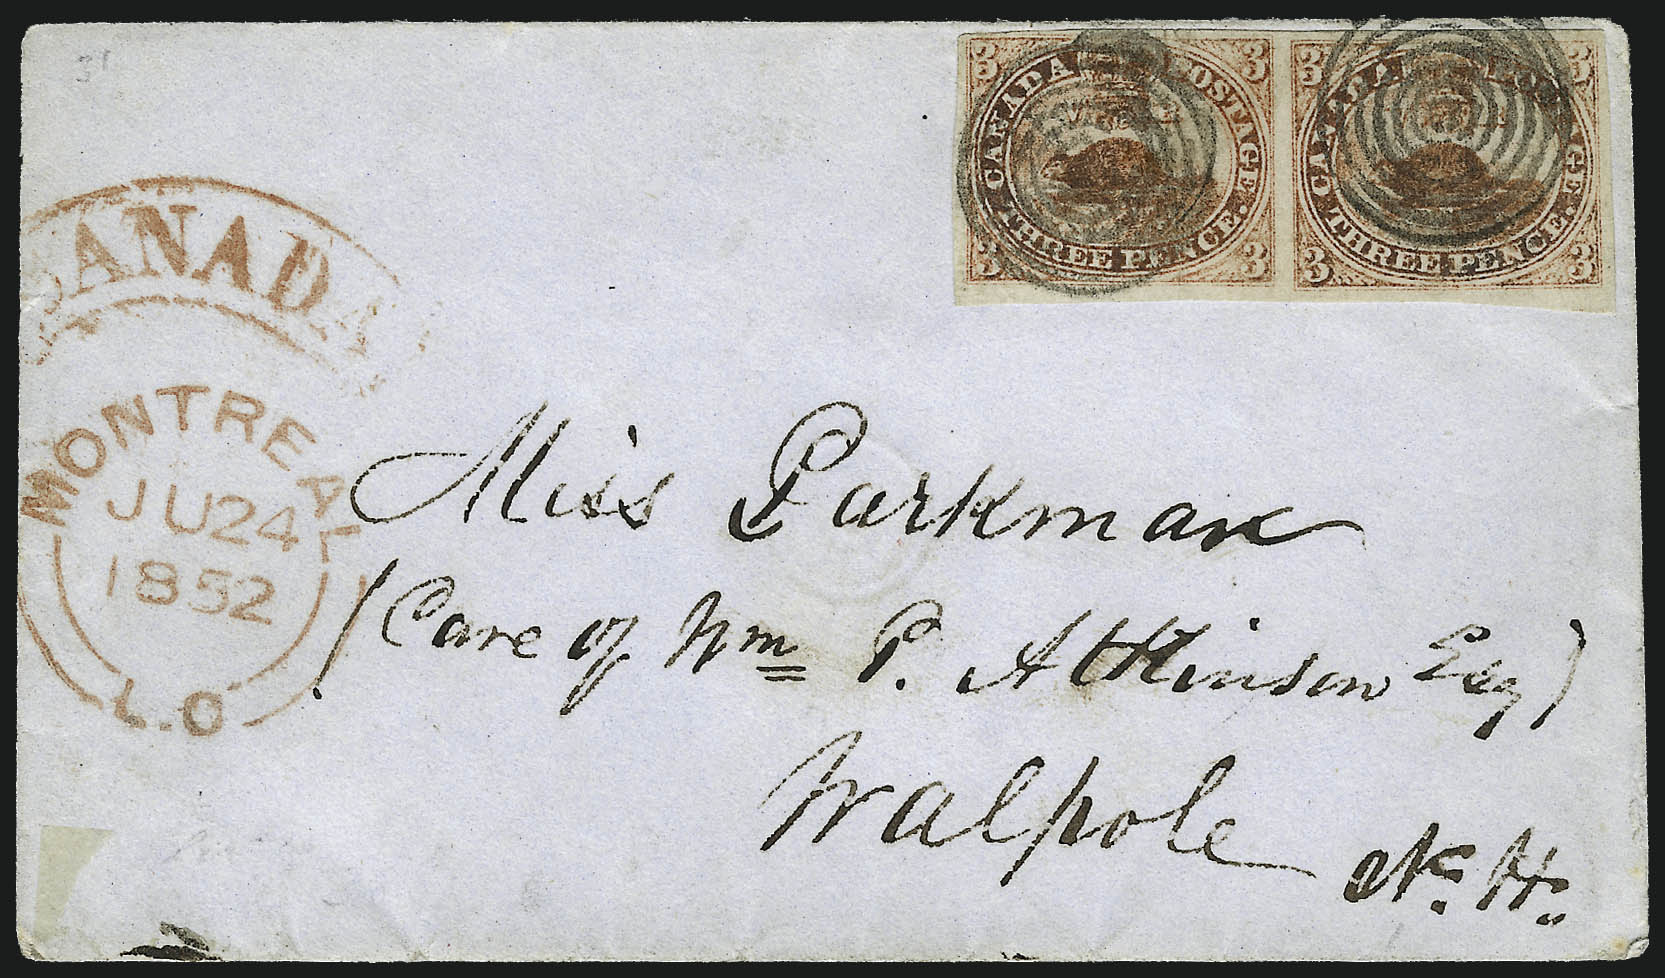 31
3 3 3 3
CANADA POSTAGE.
THREE PENCE.
3 3
CANADA POSTAGE.
THREE PENCE.
3 3
CANADA
MONTREAL
JU 24
1852
L.C
Miss Parkman
(Care of Wm P. Atkinson Esq)
Walpole
N. H.